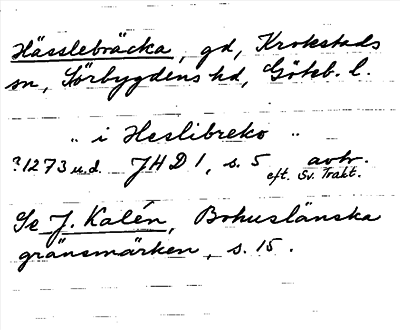 Hässlebräcka, gd, Krokstads
sn, Sörbygdens hd, Göteb. l.
„ i Heslibreko „
?1273 u.d. JHD 1, s. 5 avtr.
eft. Sv. Trakt.
Se J. Kalén, Bohuslänska
gränsmärken, s. 15.